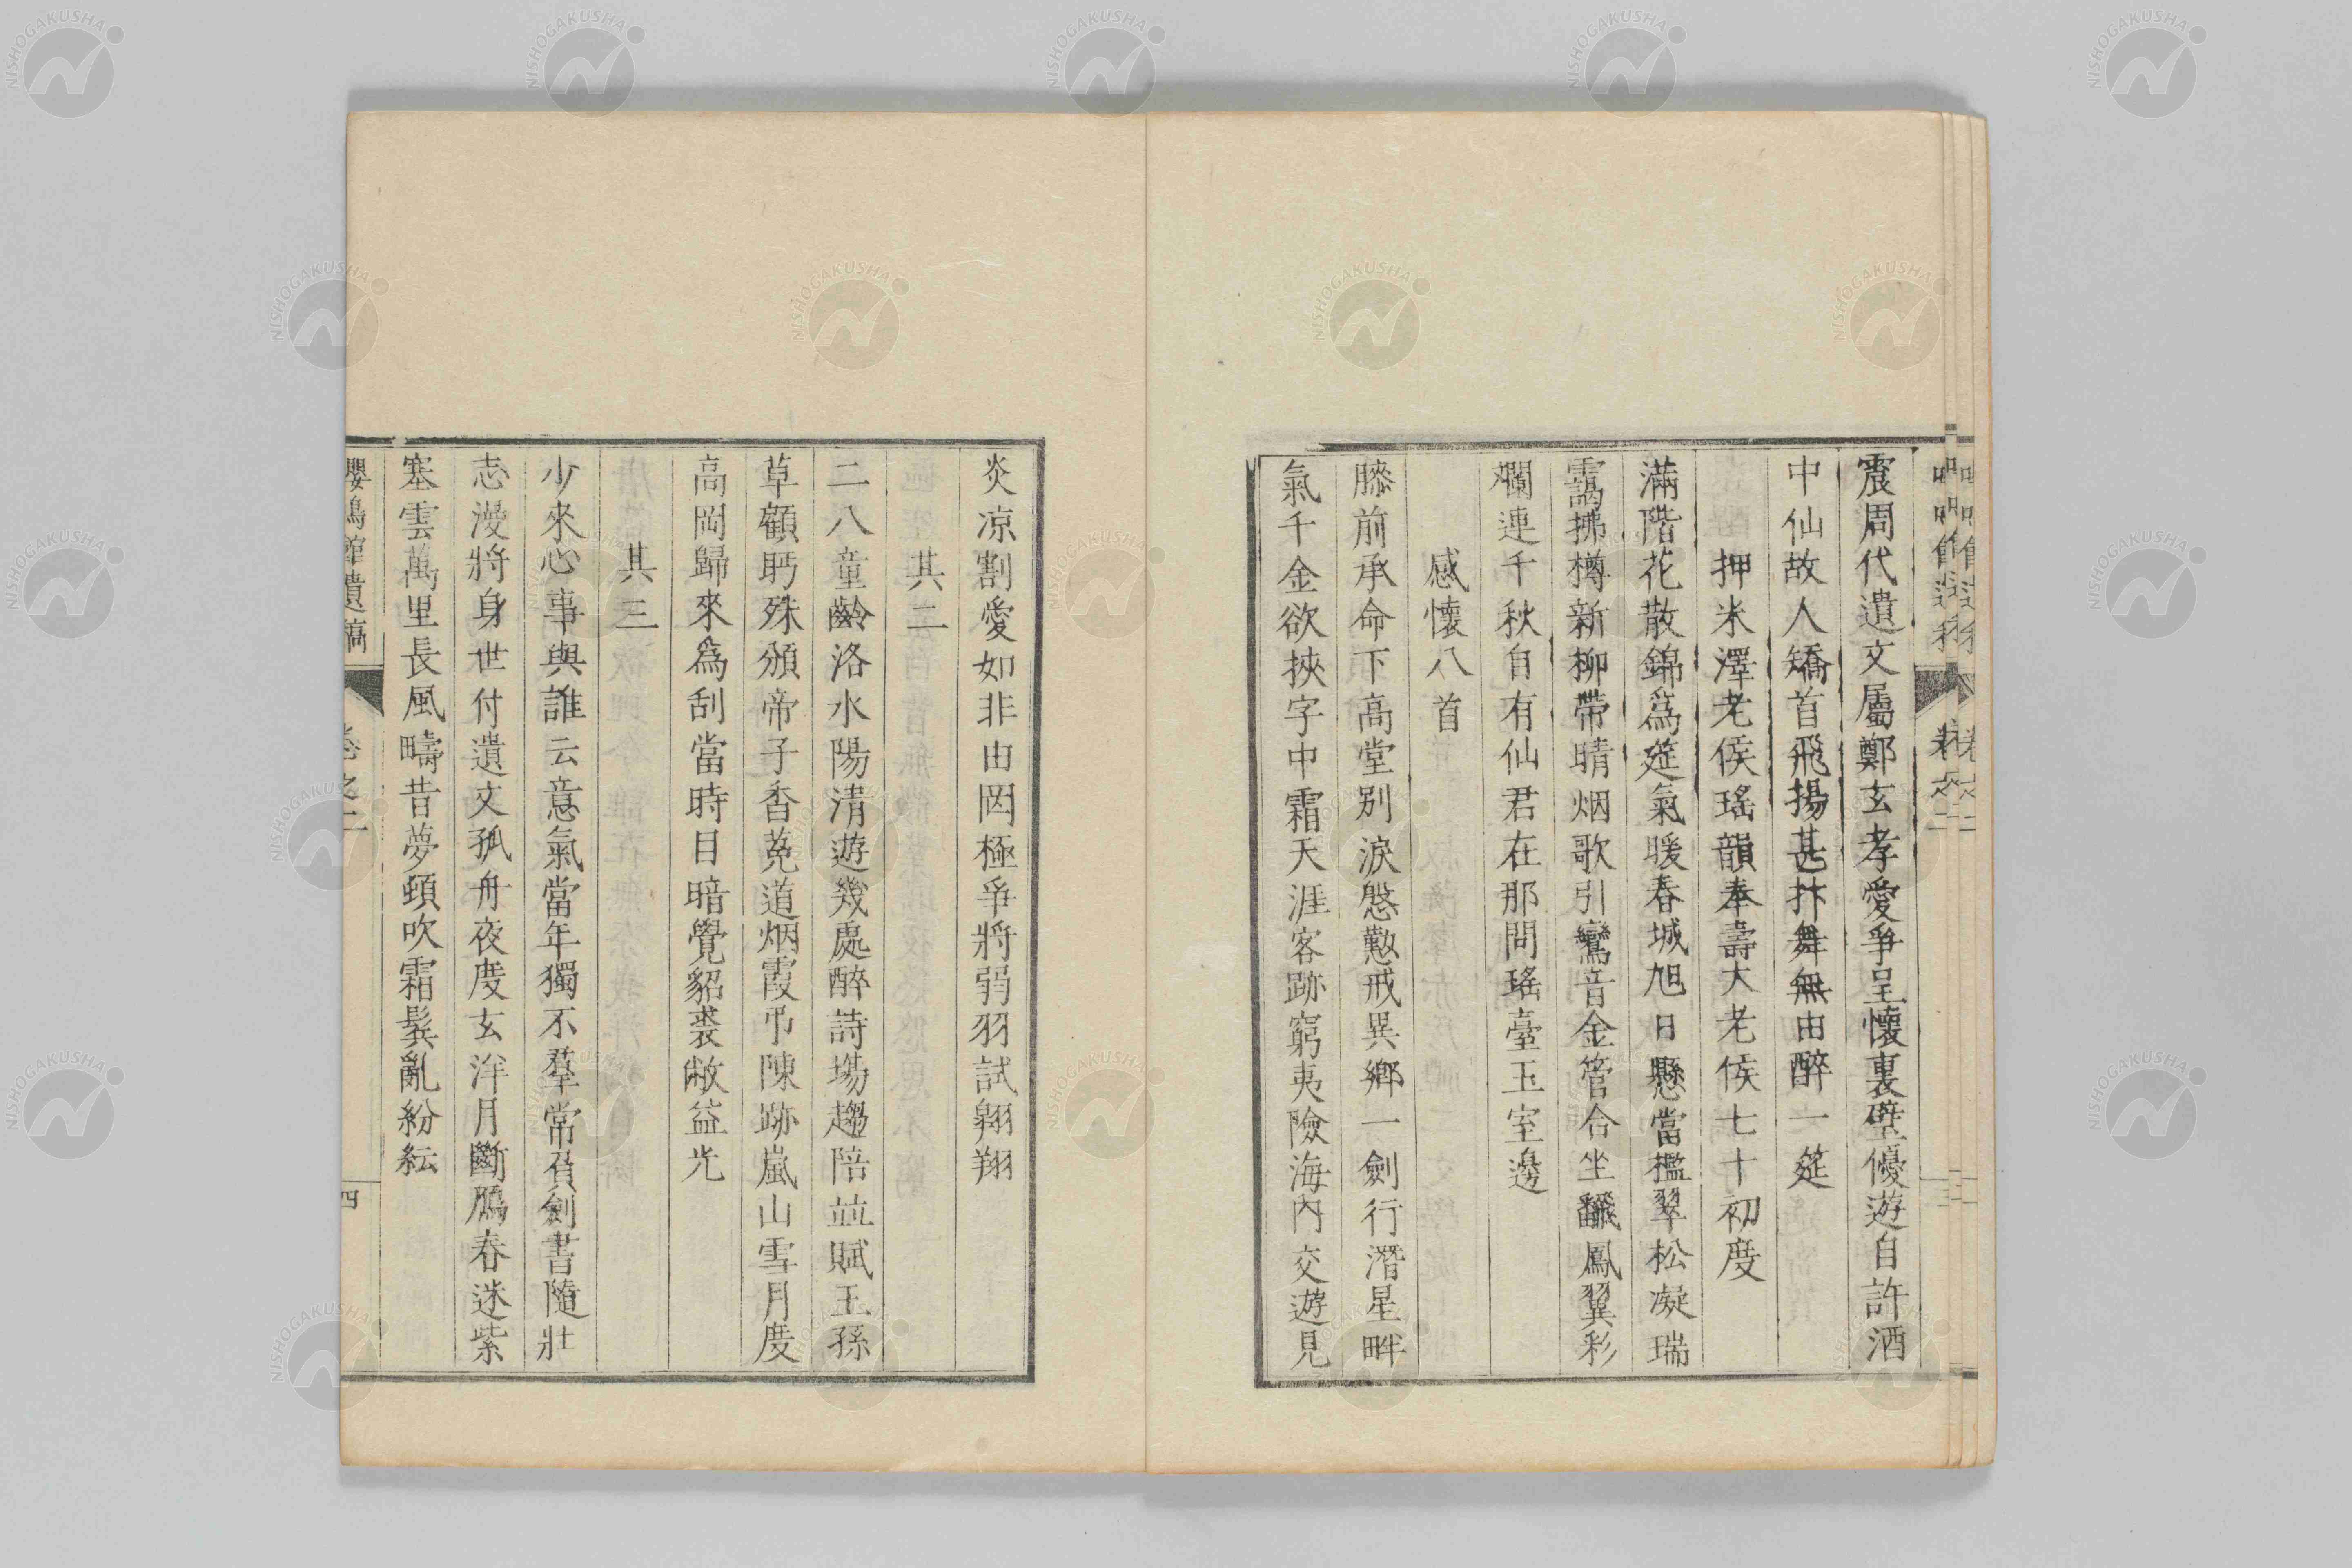 震周代遺文屬鄭玄孝愛爭呈懷裏壁優遊自許酒
中仙故人矯首飛揚甚抃舞無由醉一筵
押米澤老侯瑤韻奉壽大老侯七十初度
滿階花散錦爲筵氣暖春城旭日懸當檻翠松凝瑞
靄拂樽新柳帶晴烟歌引鸞音金管合坐飜鳳翼彩
斕連千秋自有仙君在那問瑤臺玉室邊
感懷八首
膝前承命下高堂別淚慇懃戒異鄉一劍行潛星畔
氣千金欲挾字中霜天涯客跡窮夷險海內交遊見
炎凉割愛如非由罔極爭將弱羽試翱翔
其二
二八童齡洛水陽清遊幾處醉詩塲趨陪並賦王孫
草顧眄殊頒帝子香菟道烟霞弔陳跡嵐山雪月度
高岡歸來爲刮當時目暗覺貂裘敝益光
其三
少來心事與誰云意氣當年獨不羣常負劍書隨壯
志漫將身世付遺文孤舟夜度玄洋月斷鴈春迷紫
塞雲萬里長風疇昔夢頓吹霜鬂亂紛紜
嚶鳴館遺稿 卷之二 四
NISHOGAKUSHA